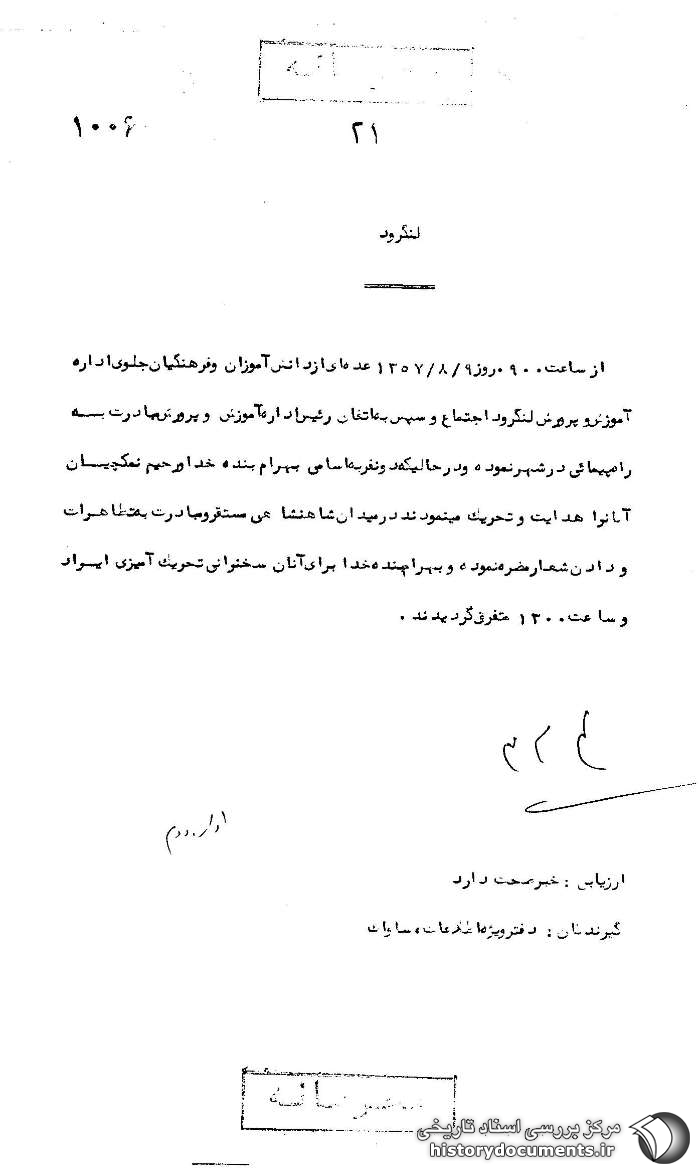 محرمانه
۲۱ ۱۰۰۶
لنگرود
از ساعت ۰۹۰۰ روز ۱۳۵۷/۸/۹ عده‌ای از دانش آموزان و فرهنگیان جلوی اداره
آموزش و پرورش لنگرود اجتماع و سپس به‌اتفاق رئیس اداره آموزش و پرورش مبادرت بــه
راه‌پیمائی در شهر نموده و در حالیکه دو نفر به‌اسامی بهرام بنده خدا و رحیم نمکچیــان
آنانرا هدایت و تحریک مینمودند در میدان شاهنشاهی مستقر و مبادرت به‌تظاهــرات
و دادن شعار مضره نموده و بهرام بنده خدا برای آنان سخنرانی تحریک آمیزی ایــراد
و ساعت ۱۳۰۰ متفرق گردیدند .
اداره دوم
ارزیابی : خبر صحت دارد
گیرندگان : دفتر ویژه اطلاعات ، ساواک
محرمانه
مرکز بررسی اسناد تاریخی
historydocuments.ir